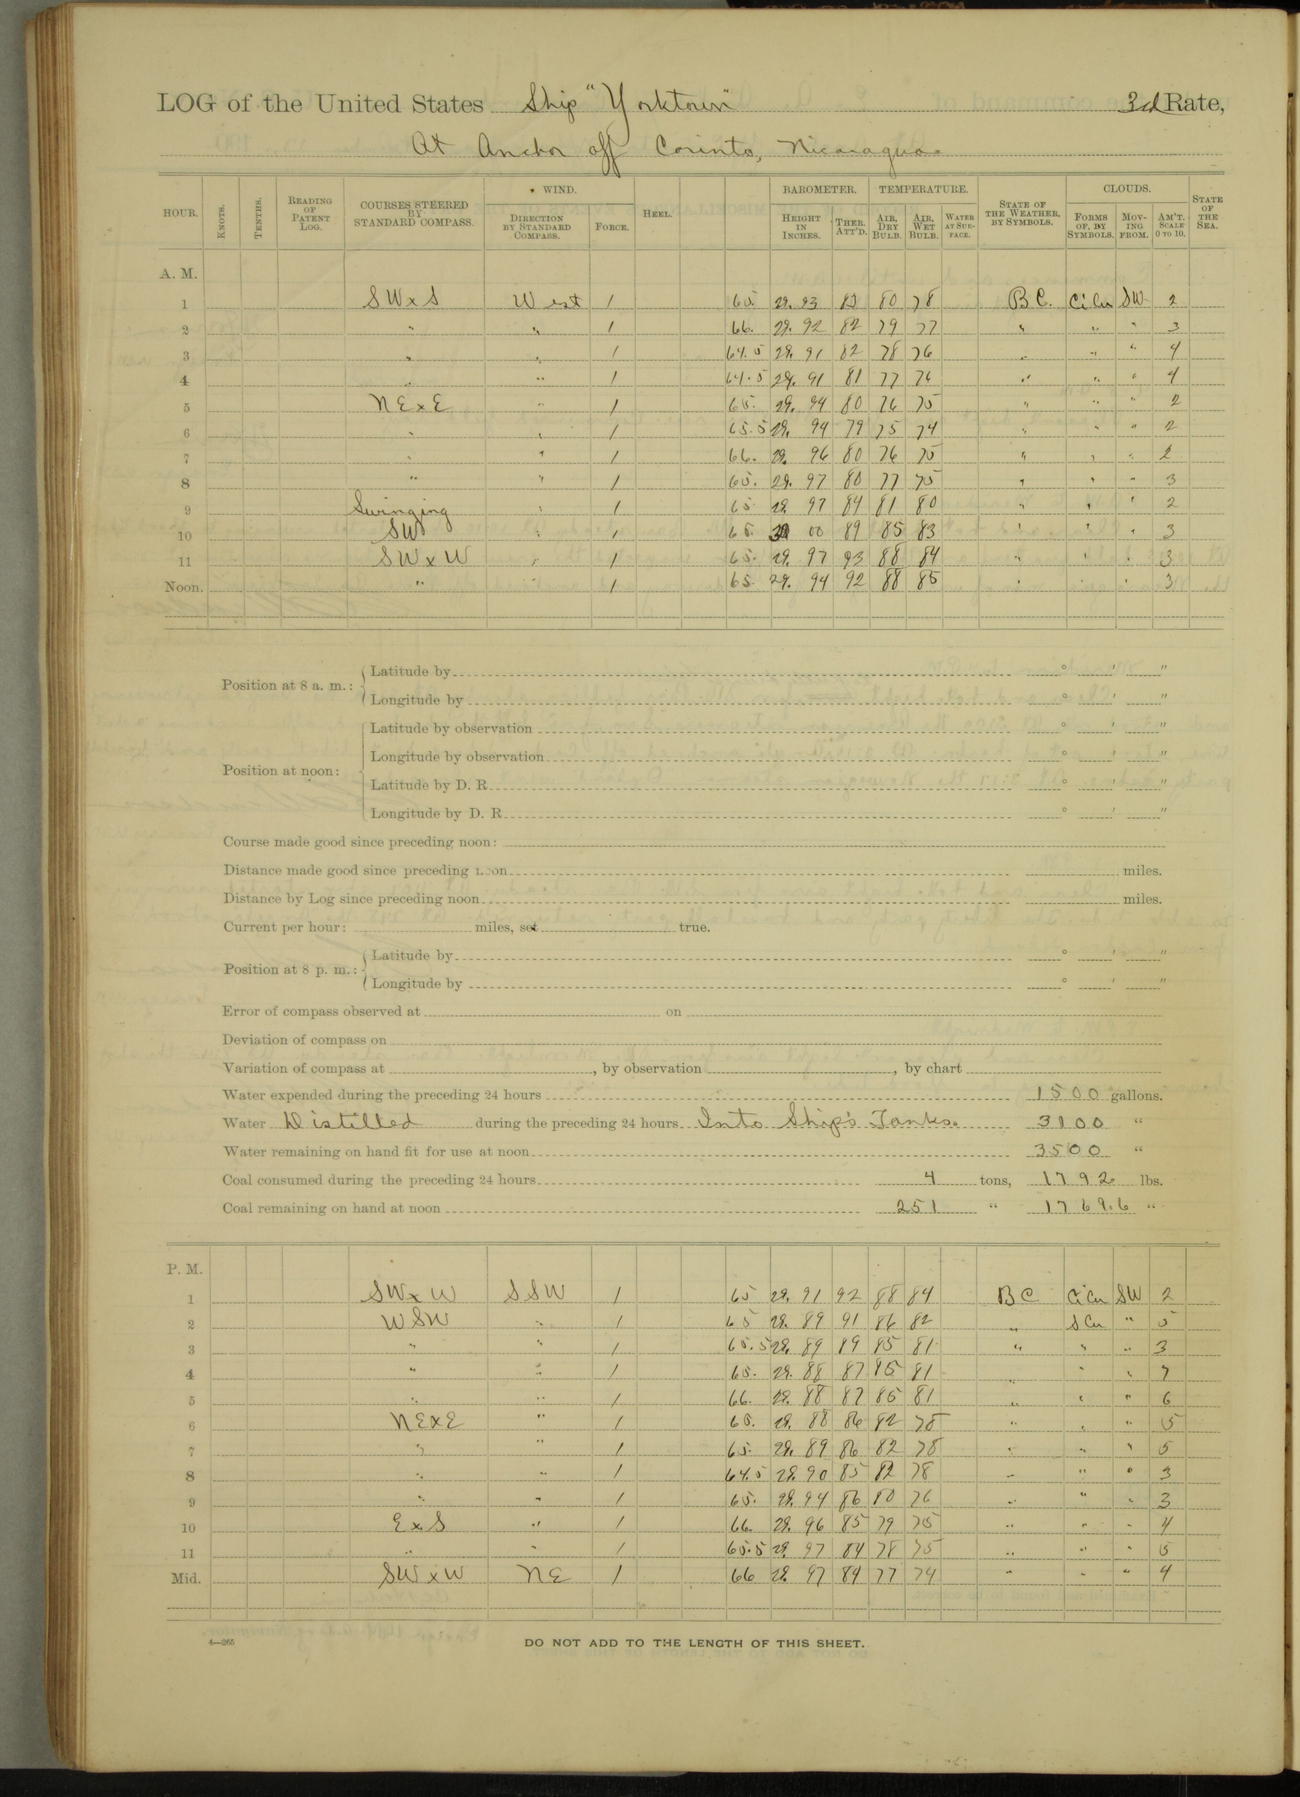 LOG of the United States Ship "Yorktown" 3d Rate,
At Anchor off Corinto, Nicaragua.
HOUR. KNOTS. TENTHS. READING OF PATENT LOG. COURSES STEERED BY STANDARD COMPASS. WIND. DIRECTION BY STANDARD COMPASS. FORCE. HEEL. BAROMETER. HEIGHT IN INCHES. THER. ATT'D. TEMPERATURE. AIR, DRY BULB. AIR, WET BULB. WATER AT SURFACE. STATE OF THE WEATHER, BY SYMBOLS. CLOUDS. FORMS OF, BY SYMBOLS. MOVING FROM. AM'T. SCALE 0 TO 10. STATE OF THE SEA.
A. M.
1 SWxS West 1 65 29. 93 83 80 78 BC. CiCu SW 2
2 " " 1 66. 29. 92 82 79 77 " " " 3
3 " " 1 64.5 29. 91 82 78 76 " " " 4
4 " " 1 64.5 29. 91 81 77 76 " " " 4
5 NExE " 1 65. 29. 94 80 76 75 " " " 2
6 " " 1 65.5 29. 94 79 75 74 " " " 2
7 " " 1 66. 29. 96 80 76 75 " " " 2
8 " " 1 65. 29. 97 80 77 75 " " " 3
9 Swinging " 1 65 29. 97 84 81 80 " " " 2
10 SW " 1 65. 30 00 89 85 83 " " " 3
11 SWxW " 1 65. 29. 97 93 88 84 " " " 3
Noon. " " 1 65. 29. 94 92 88 85 " " " 3
Position at 8 a. m.: Latitude by ° ' "
Longitude by ° ' "
Position at noon: Latitude by observation ° ' "
Longitude by observation ° ' "
Latitude by D. R. ° ' "
Longitude by D. R. ° ' "
Course made good since preceding noon:
Distance made good since preceding noon miles.
Distance by Log since preceding noon miles.
Current per hour: miles, set true.
Position at 8 p. m.: Latitude by ° ' "
Longitude by ° ' "
Error of compass observed at on
Deviation of compass on
Variation of compass at , by observation , by chart
Water expended during the preceding 24 hours 1500 gallons.
Water Distilled during the preceding 24 hours Into Ship's Tanks. 3100 "
Water remaining on hand fit for use at noon 3500 "
Coal consumed during the preceding 24 hours 4 tons, 1792 lbs.
Coal remaining on hand at noon 251 " 1769.6 "
P. M.
1 SWxW SSW 1 65 29. 91 92 88 84 BC CiCu SW 2
2 WSW " 1 65 29. 89 91 86 82 " SCu " 5
3 " " 1 65.5 29. 89 89 85 81 " " " 3
4 " " 1 65. 29. 88 87 85 81 " " " 7
5 " " 1 66. 29. 88 87 85 81 " " " 6
6 NExE " 1 65. 29. 88 86 82 78 " " " 5
7 " " 1 65. 29. 89 86 82 78 " " " 5
8 " " 1 64.5 29. 90 85 82 78 " " " 3
9 " " 1 65. 29. 94 86 80 76 " " " 3
10 ExS " 1 66. 29. 96 85 79 75 " " " 4
11 " " 1 65.5 29. 97 84 78 75 " " " 5
Mid. SWxW NE 1 66 29. 97 84 77 74 " " " 4
4—265
DO NOT ADD TO THE LENGTH OF THIS SHEET.